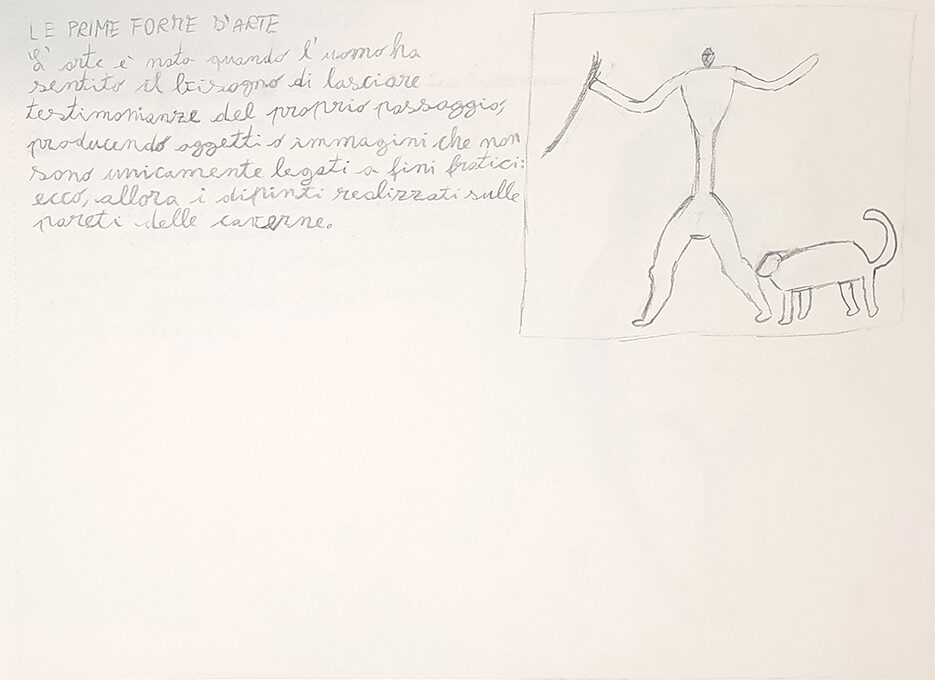 LE PRIME FORME D'ARTE
L'arte è nata quando l'uomo ha
sentito il bisogno di lasciare
testimonianze del proprio passaggio,
producendo oggetti o immagini che non
sono unicamente legati a fini pratici:
ecco, allora i dipinti realizzati sulle
pareti delle caverne.